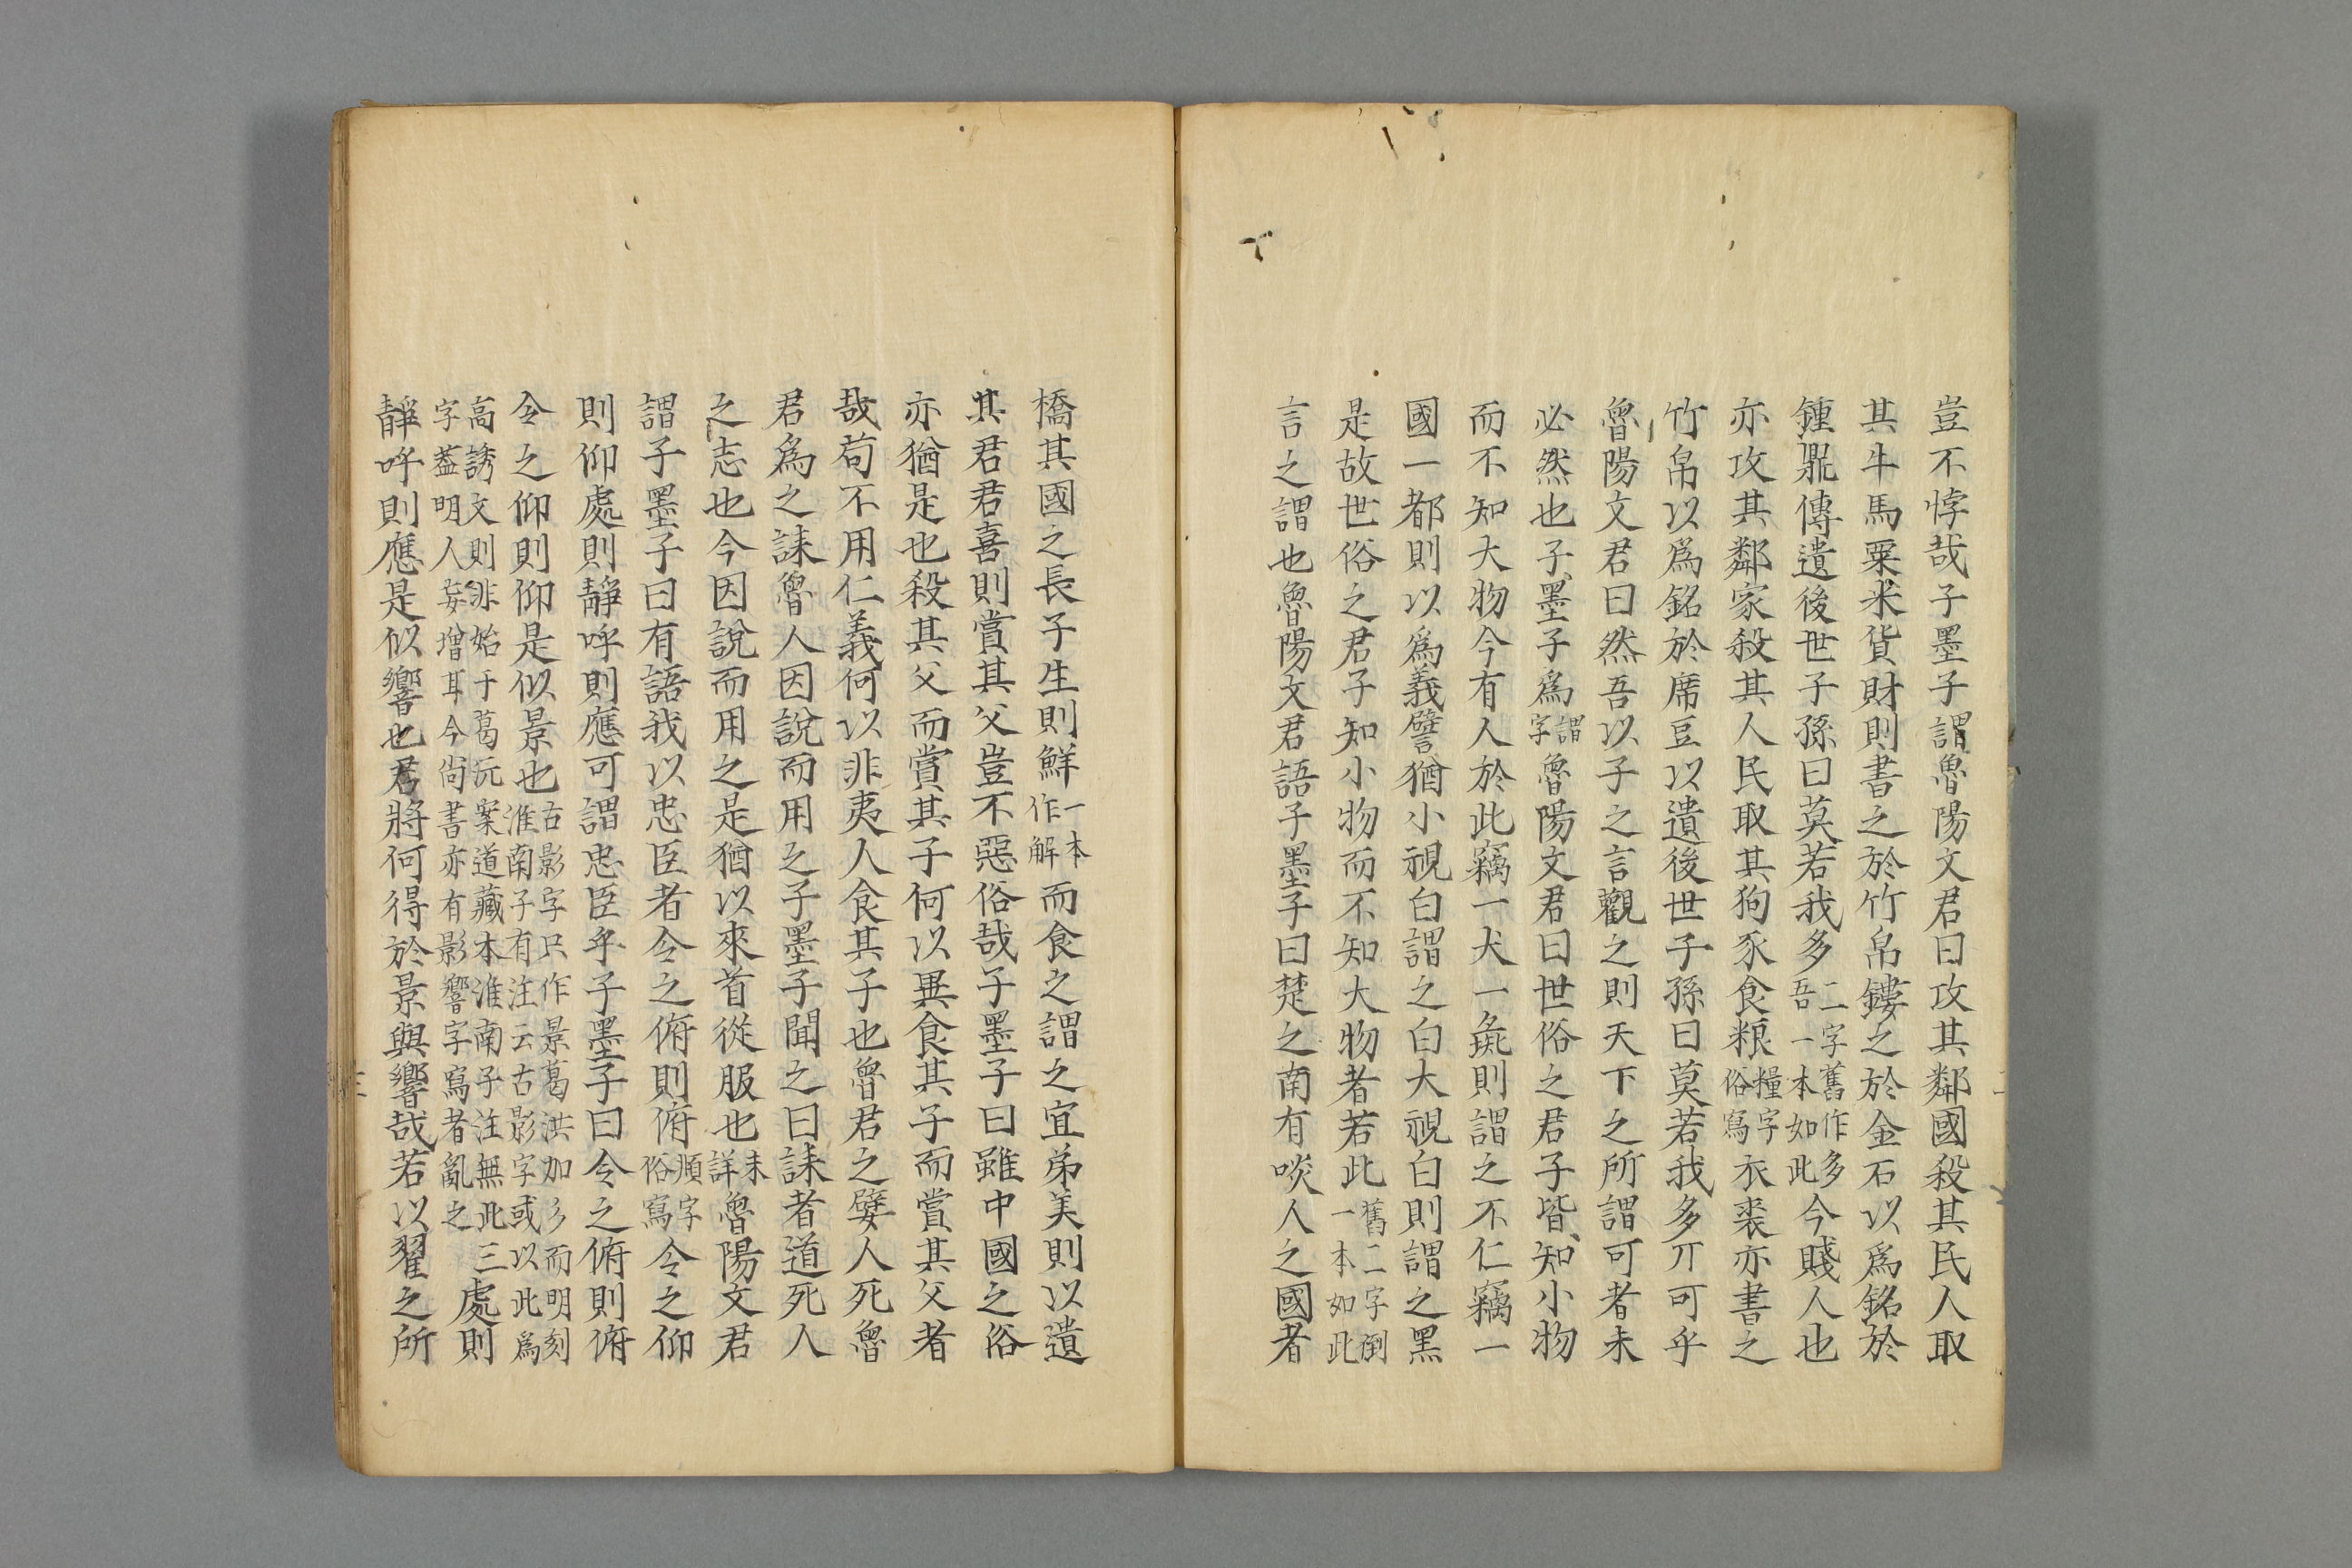 豈不悖哉子墨子謂魯陽文君曰攻其鄰國殺其民人取
其牛馬粟米貨財則書之於竹帛鏤之於金石以爲銘於
鍾鼎傳遺後世子孫曰莫若我多二字舊作多吾一本如此今賤人也
亦攻其鄰家殺其人民取其狗豕食粮糧字俗寫衣裘亦書之
竹帛以爲銘於席豆以遺後世子孫曰莫若我多丌可乎
魯陽文君曰然吾以子之言觀之則天下之所謂可者未
必然也子墨子爲謂字魯陽文君曰世俗之君子皆知小物
而不知大物今有人於此竊一犬一彘則謂之不仁竊一
國一都則以爲義譬猶小視白謂之白大視白則謂之黑
是故世俗之君子知小物而不知大物者若此舊二字倒一本如此
言之謂也魯陽文君語子墨子曰楚之南有啖人之國者
橋其國之長子生則鮮一本作解而食之謂之宜弟美則以遺
其君君喜則賞其父豈不惡俗哉子墨子曰雖中國之俗
亦猶是也殺其父而賞其子何以異食其子而賞其父者
哉苟不用仁義何以非夷人食其子也魯君之嬖人死魯
君爲之誄魯人因說而用之子墨子聞之曰誄者道死人
之志也今因說而用之是猶以來首從服也未詳魯陽文君
謂子墨子曰有語我以忠臣者令之俯則俯頫字俗寫令之仰
則仰處則靜呼則應可謂忠臣乎子墨子曰令之俯則俯
令之仰則仰是似景也古影字只作景葛洪加彡而明刻淮南子有注云古影字或以此爲
高誘文則非始于葛沅案道藏本淮南子注無此三字葢明人妄增耳今尚書亦有影響字寫者亂之處則
靜呼則應是似響也君將何得於景與響哉若以翟之所